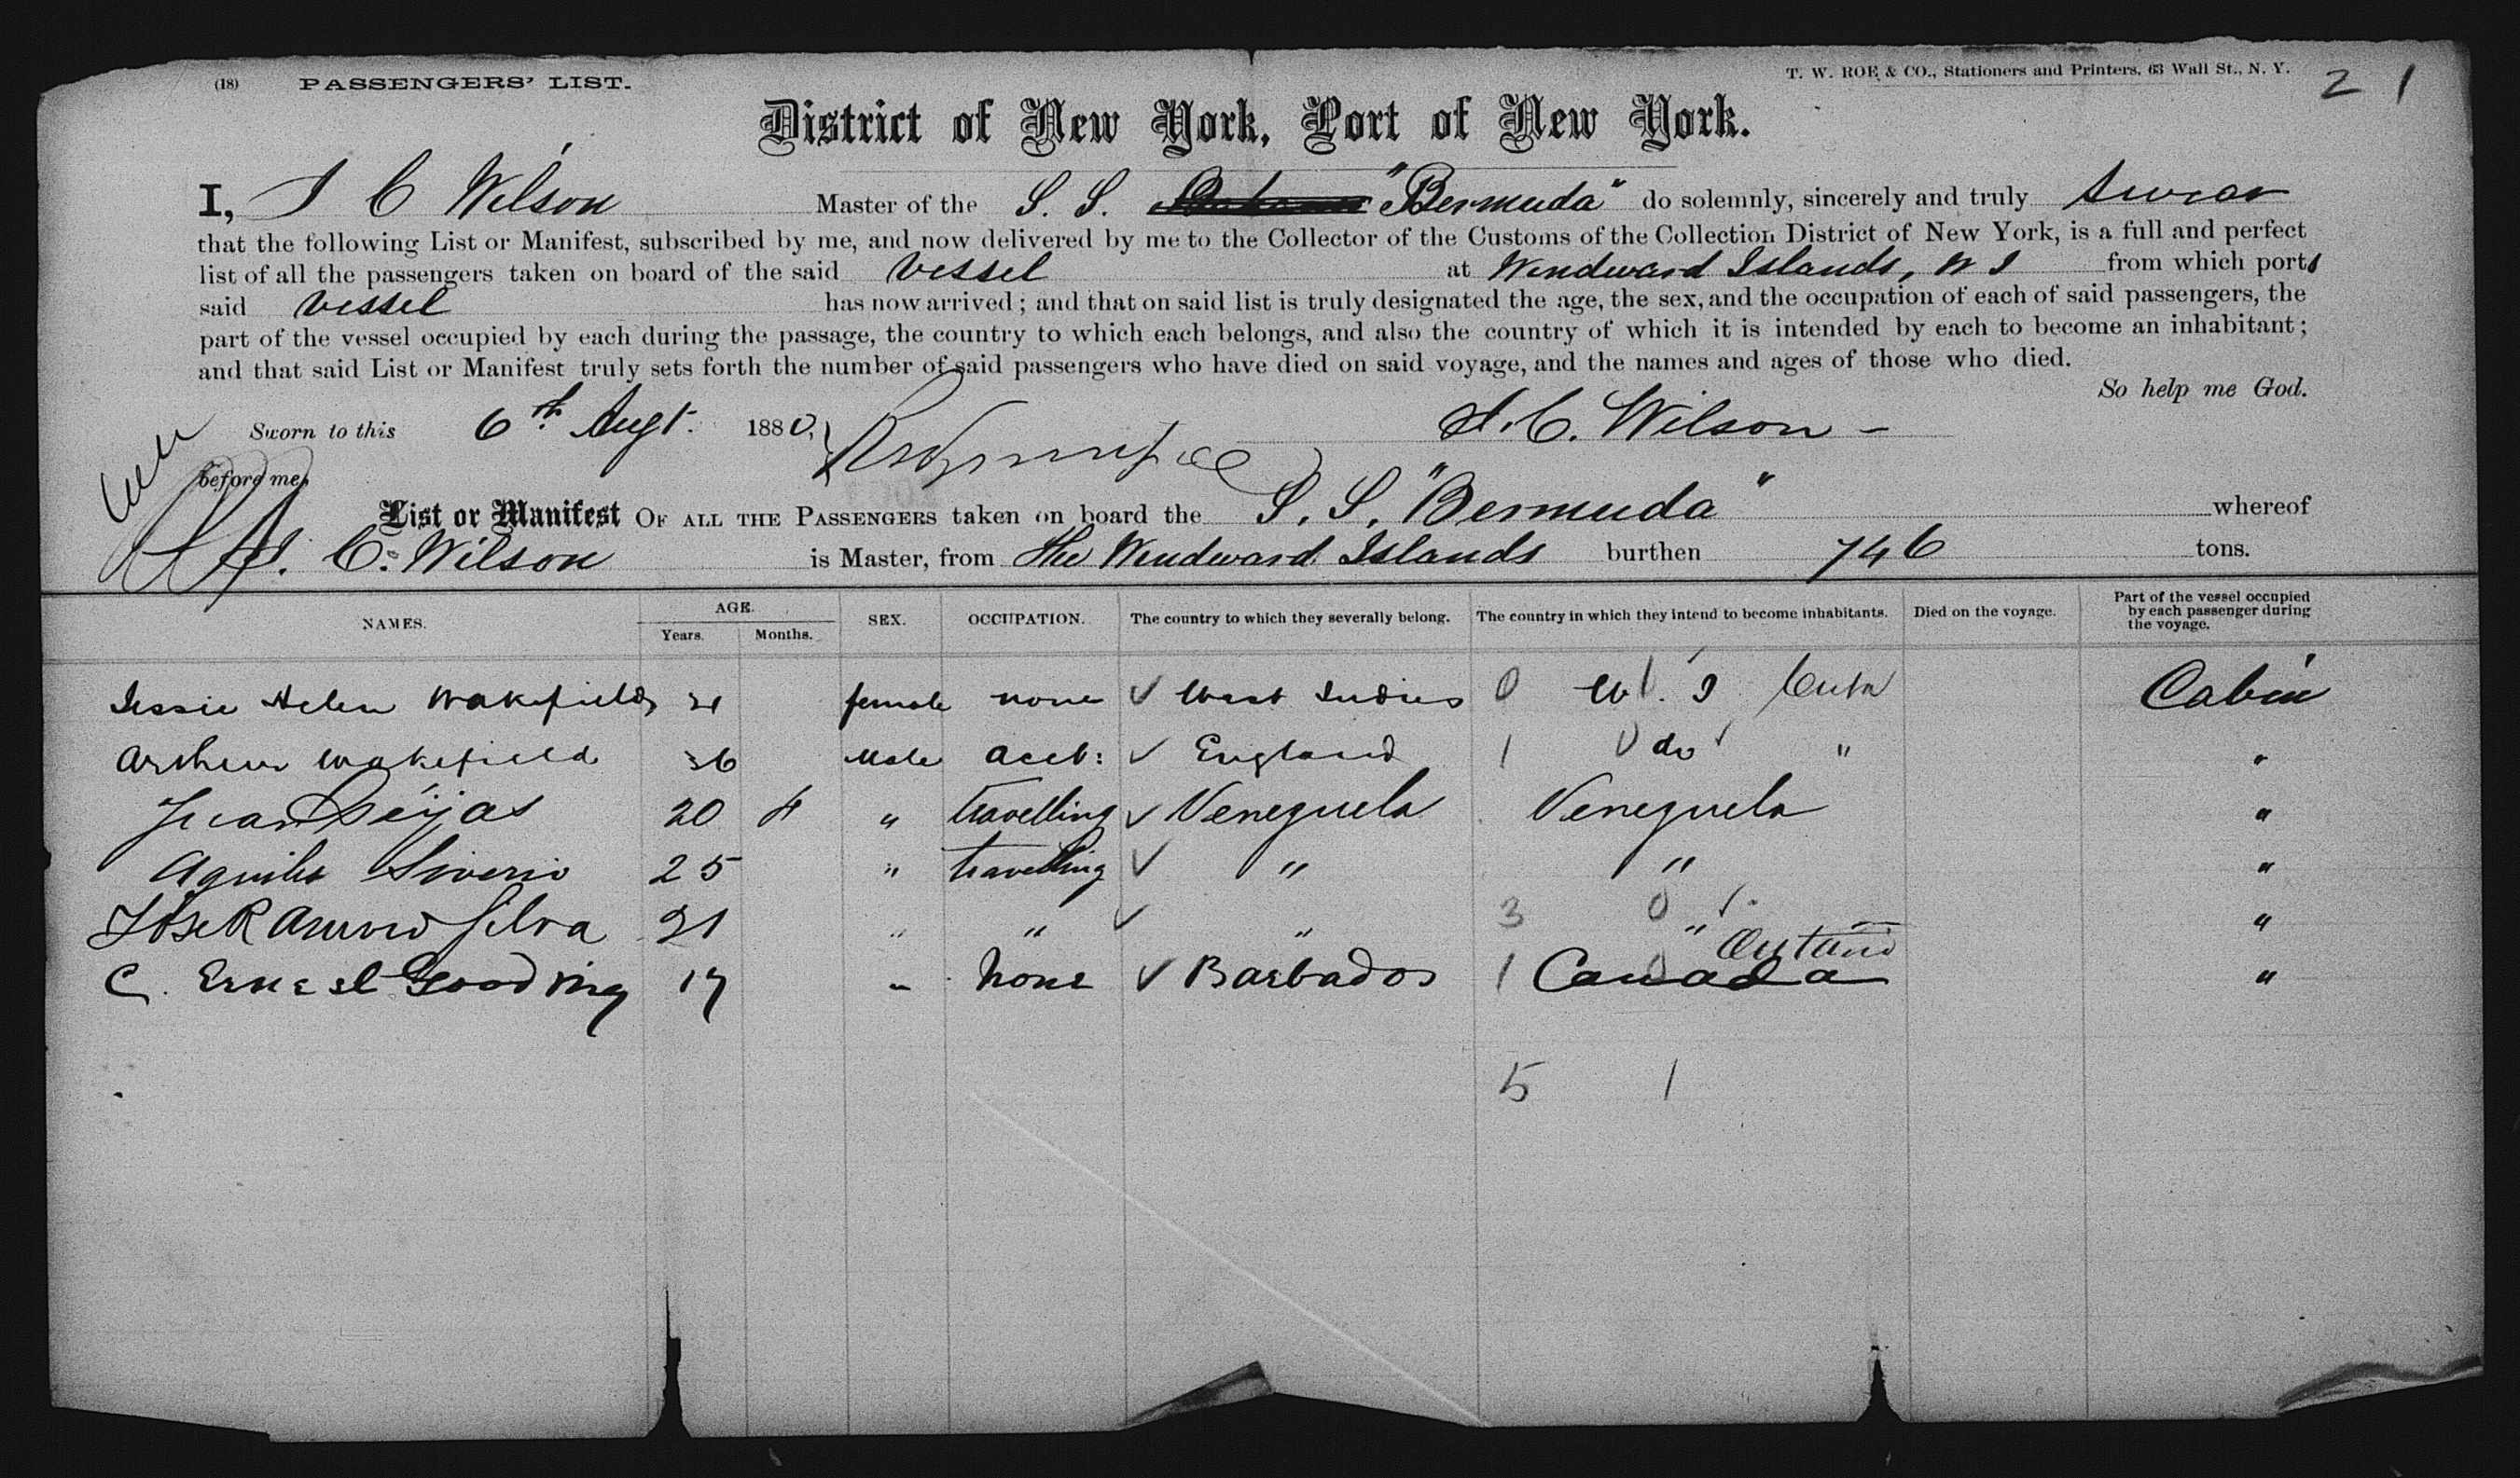 (18) PASSENGERS' LIST. T. W. ROE & CO., Stationers and Printers, 63 Wall St., N. Y. 2 1
District of New York, Port of New York.
I, J C Wilson Master of the S. S. "Bermuda" do solemnly, sincerely and truly swear
that the following List or Manifest, subscribed by me, and now delivered by me to the Collector of the Customs of the Collection District of New York, is a full and perfect
list of all the passengers taken on board of the said vessel at Windward Islands, W I from which ports
said vessel has now arrived; and that on said list is truly designated the age, the sex, and the occupation of each of said passengers, the
part of the vessel occupied by each during the passage, the country to which each belongs, and also the country of which it is intended by each to become an inhabitant;
and that said List or Manifest truly sets forth the number of said passengers who have died on said voyage, and the names and ages of those who died.
So help me God.
Sworn to this 6th Augt. 1880, J. C. Wilson
before me,
List or Manifest OF ALL THE PASSENGERS taken on board the S. S. "Bermuda" whereof
J. C. Wilson is Master, from the Windward Islands burthen 746 tons.
NAMES. AGE. Years. Months. SEX. OCCUPATION. The country to which they severally belong. The country in which they intend to become inhabitants. Died on the voyage. Part of the vessel occupied by each passenger during the voyage.
Jessie Helen Wakefield female none ✓ West Indies 0 W. I Cuba Cabin
Arthur Wakefield 36 Male acct: ✓ England 1 0 do " "
Juan Seijas 20 4 " travelling ✓ Venezuela Venezuela "
25 " travelling ✓ " " "
Silva 21 " " ✓ " 3 0 1 " "
C. Ernest Gooding 17 " None ✓ Barbados 1 Canada "
5 1